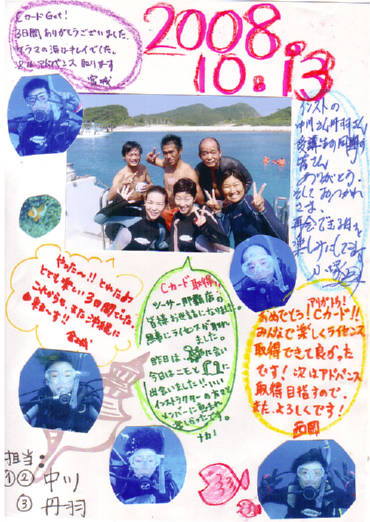 CカードGet!
3日間ありがとうございました。
ケラマの海はキレイでした。
次はアドバンス取ります
宮城
2008.
10.13
インストの
中川さん丹羽さん
皆さん
ありがとう。
そしておつかれ
さま。
再会できる日を
楽しみにしてます
やったー!!とれたよ
とても楽しい3日間でした
Cカード取得!!
シーサー那覇店の
皆様お世話になりました。
無事にライセンスが取れ
ました。
昨日は
に会い
今日は
出会いました!!いい
インストラクターの方や
メンバーに
楽しかったです。
おめでとう!Cカード!!
みんなで楽しくライセンス
取得できて良かった
です!次はアドバンス
取得目指すので、
また、よろしくです!
西岡
担当:
①② 中川
③ 丹羽
33
33